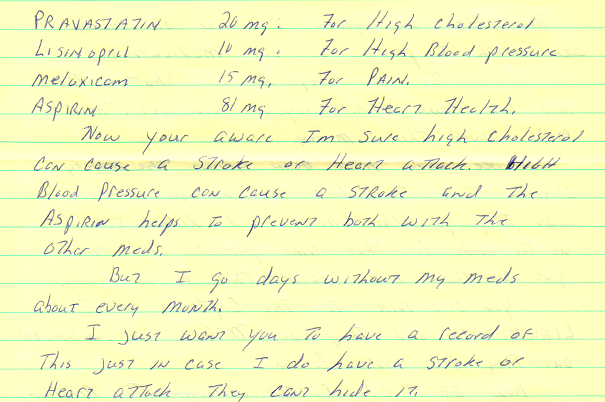 PRAVASTATIN 20 mg. For High cholesterol
Lisinopril 10 mg. For High Blood pressure
Meloxicam 15 mg. For PAIN.
ASPIRIN 81 mg For Heart Health.
Now your aware Im sure high cholesterol
can cause a stroke or Heart attack. High
Blood Pressure can cause a stroke and the
ASPIRIN helps to prevent both with the
other meds.
But I go days without my meds
about every month.
I just want you to have a record of
this just in case I do have a stroke or
Heart attack they cant hide it.